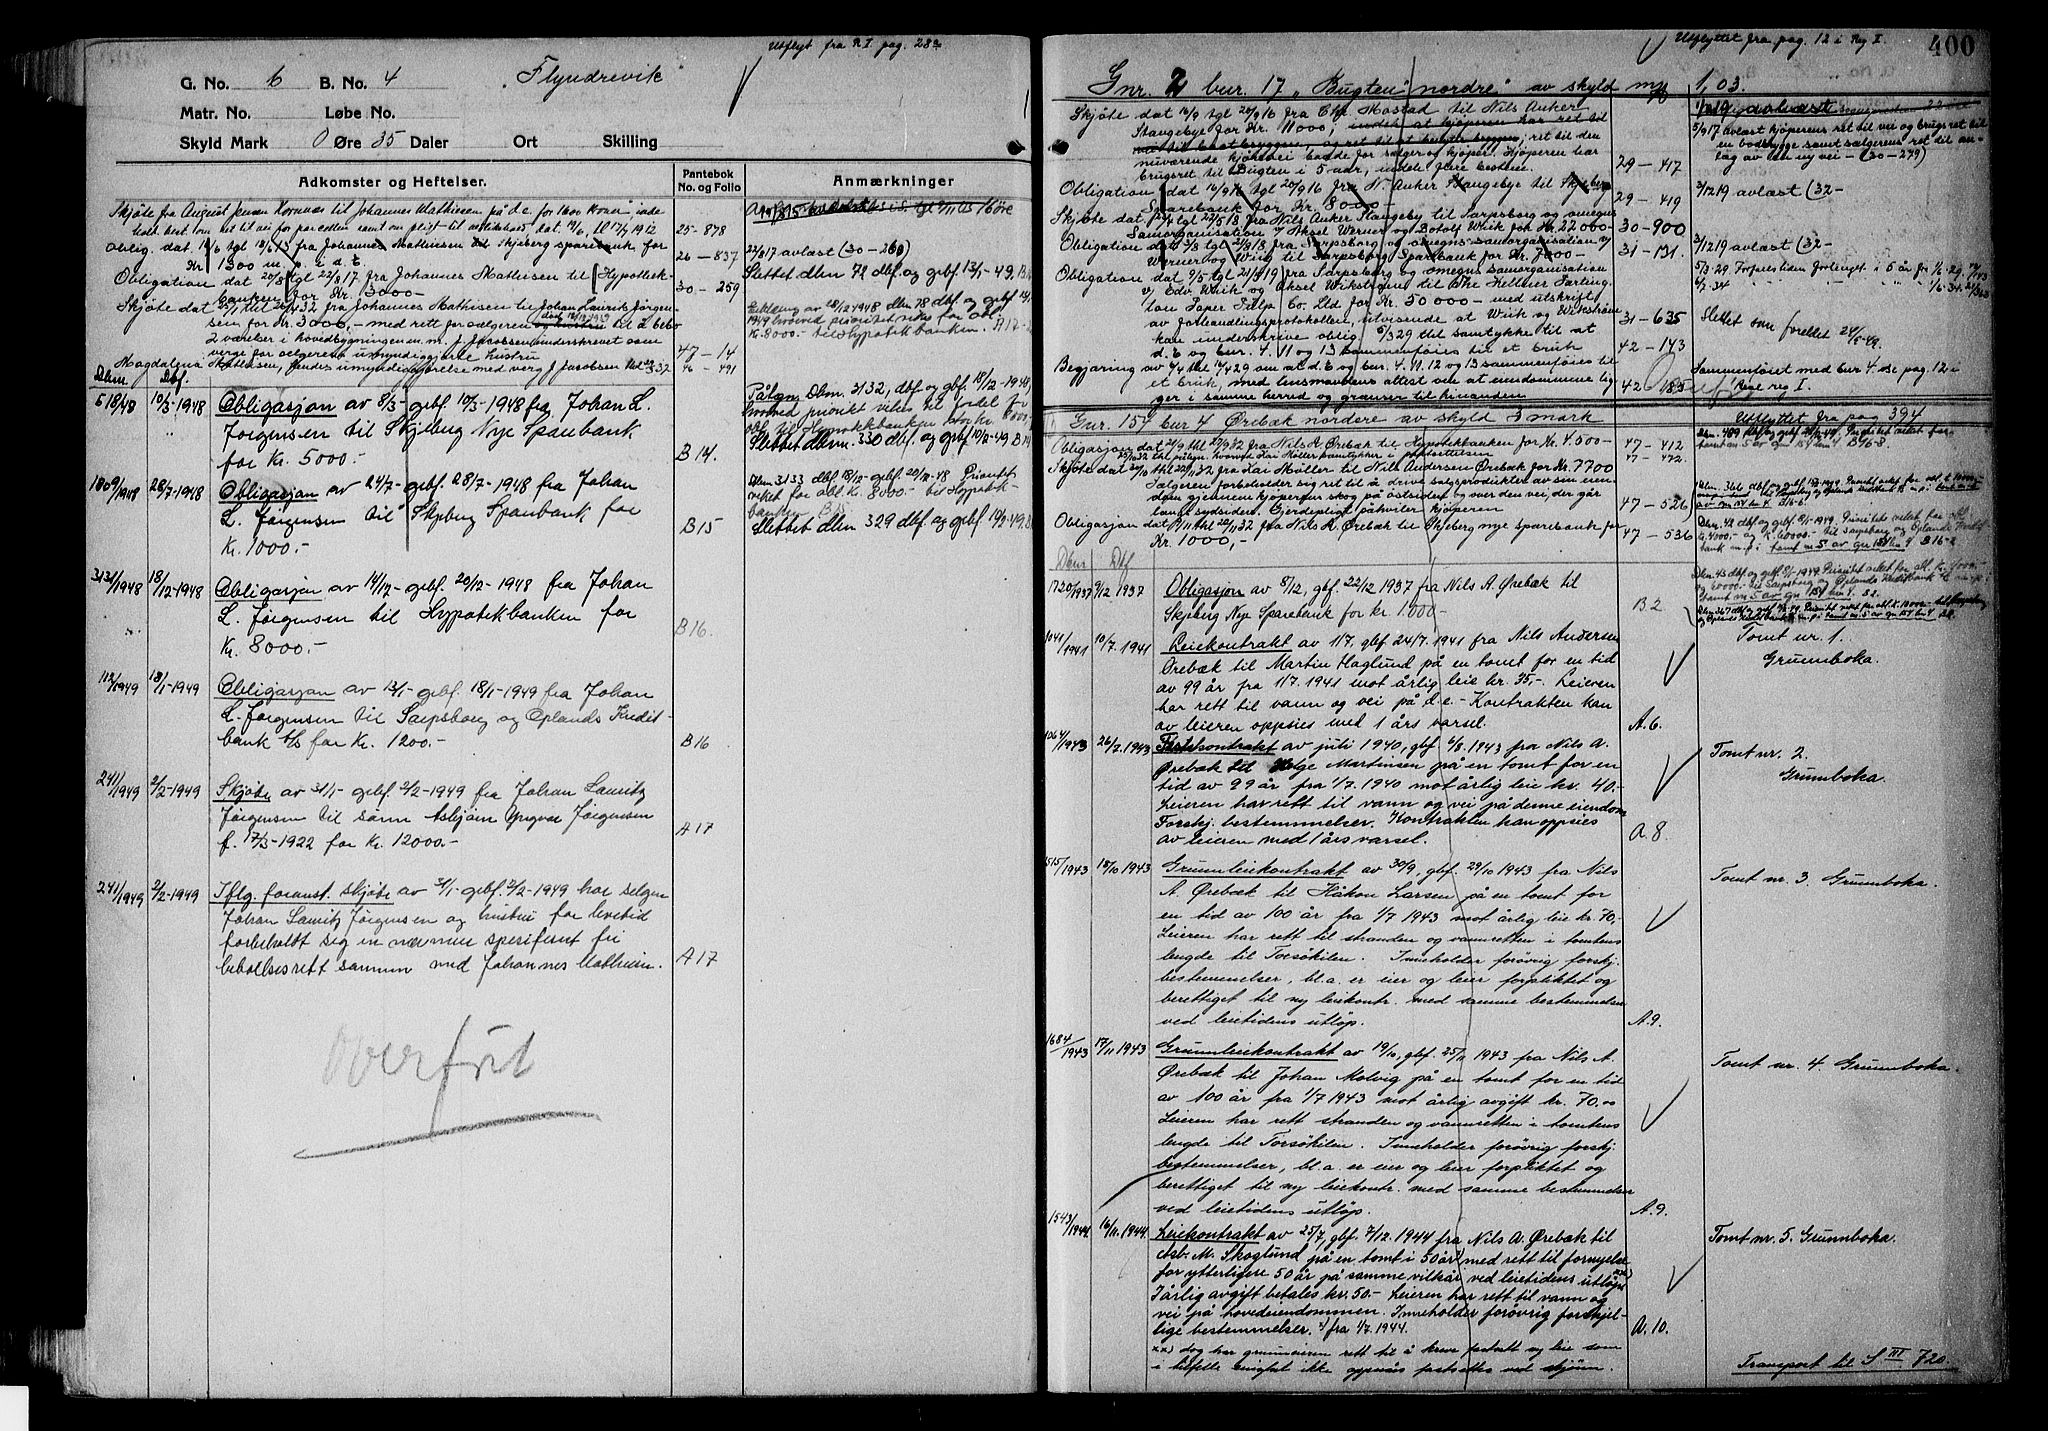 Utflyt fra R I. pag. 28a
G. No. 6 B. No. 4 "Flyndrevik"
Matr. No. Løbe No.
Skyld Mark 0 Øre 35 Daler Ort Skilling
Adkomster og Heftelser.
Pantebok No. og Folio
Anmærkninger
Skjøte fra August Jensen Hornnæs til Johannes Mathisen på d.e. for 1600 Kroner, dat. 17/6, tl 17/7 1912
25-878
oblig. dat. 16/6 tgl 18/6 13 fra Johannes Mathiesen til Skjeberg sparebank for
Kr 1300 m. p. i d. E.
26-837
22/8 17 avlast (30-260)
Obligation dat 20/8 tgl 22/8 17 fra Johannes Mathisen til Hypothek-
banken for Kr. 3000-
30-259
Slettet dbm 72 dbf. og gebf. 13/1-49, B 16
Skjøte dat 20/1 thl 26/4 32 fra Johannes Mathisen til Johan Laurits Jørgen-
sen for Kr. 3000,- med rett for sælgeren til å bebo
2 værelser i hovedbygningen m. m. J. Jacobsen underskrevet som
verge for sælgerens umyndiggjorte hustru
47-14
Magdalena Mathisen, hendes umyndiggjørelse med verg J Jacobsen
46-491
Dbm. Dbf.
618/48 10/3-1948 Obligasjon av 8/3- gebf. 10/3-1948 fra Johan L.
Jørgensen til Skjeberg Nye Sparebank
for Kr. 5000.-
B 14.
Påtegn Dbm. 3132, dbf og gebf 18/12-1948,
hvorved prioritet vikes til fordel for
obl. til Hypotekbanken for Kr. 8000,-
Slettet dbm. 330 dbf. og gebf. 10/2-49 B 14
1809/1948 28/7-1948 Obligasjon av 24/7- gebf. 28/7-1948 fra Johan
L. Jørgensen til Skjeberg Sparebank for
Kr. 1000.-
B 15
Dbm 3133 dbf. 18/12- gebf. 20/12-48 Prioritet
veket for obl. Kr. 8000.- til Hypotek-
banken B 15.
Slettet dbm 329 dbf og gebf 10/2-49, B 15
3131/1948 18/12-1948 Obligasjon av 14/12- gebf. 20/12-1948 fra Johan
L. Jørgensen til Hypotekbanken for
Kr. 8000.-
B 16.
112/1949 18/1-1949 Obligasjon av 13/1- gebf. 18/1-1949 fra Johan
L. Jørgensen til Sarpsborg og Oplands Kredit-
bank A/S for Kr. 1200.-
B 16
241/1949 2/2-1949 Skjøte av 31/1- gebf. 2/2-1949 fra Johan Lauritz
Jørgensen til sønn Asbjørn Yngvar Jørgensen
f. 17/3-1922 for Kr. 12000.-
A 17
241/1949 2/2-1949 Iflg. foranst. skjøte av 31/1- gebf. 2/2-1949 har selgeren
Johan Lauritz Jørgensen og hustru for livetid
forbeholdt sig en nærmere spesifisert fri
beboelsesrett sammen med Johannes Mathisen.
A 17
Overført
Utflyttet fra pag. 12 i Reg I.
400
Gnr. 2 bnr. 17 "Bugten nordre" av skyld mk 1,03.
Skjøte dat 16/9 tgl 20/9 16 fra Chr. Mostad til Nils Anker
Stangebye for Kr. 11000,
nuværende kjørevei både for sælger og kjøper. Kjøperen har
brugsret til Bugten i 5 aar,
29-417
5/9 17 avlæst kjøperens ret til vei og brugsret til
en badebrygge samt sælgerens ret til an-
læg av den ny vei - (30-279)
Obligation dat 16/9 16 tgl 20/9 16 fra N. Anker Stangebye til Skjeberg
Sparebank for Kr. 8000-
29-419
3/12 19 avlast (32-
Skjøte dat 12/4 tgl 22/5 18 fra Nils Anker Stangeby til Sarpsborg og omegns
Samorganisation v/ Aksel Werner og Botolf Wiik for Kr. 22000-
30-900
Obligation dat 3/8 tgl 21/8 18, fra Sarpsborg og omegns samorganisation v/
Werner og Wiig til Sarpsborg Sparebank for Kr. 7000-
31-131.
3/12 19 avlast (32-
Obligation dat 9/5 tgl 21/8 19 fra Sarpsborg og omegns samorganisation
v. Edv. Wiik og Aksel Wikstrøm til The Kellner Parting-
ton Paper Pulp Co. Ltd for Kr. 50000- med utskrift
av forhandlingsprotokollen, utvisende at Wiik og Wikstrøm
kan underskrive oblig.
31-635
Slettet som forældet 24/5-49.
d. E og bnr. 4. 11 og 13 sammenføies til et bruk
42-143
Begjæring av 4/4 thl 10/4 29 om at d. E og bnr. 4. 11. 12 og 13 sammenføies til
et bruk, med lensmandens attest om at eiendommene lig-
ger i samme herred og grænser til hinanden
42-185
Sammenføiet med bnr 4. se pag. 12 i
reg I.
Gnr. 154 bnr 4 Ørebæk nordere av skyld 3 mark
Utflyttet fra pag 394
Obligasjon dat 20/9 thl 27/9 32 fra Nils A Ørebæk til Hypotekbanken for Kr. 4.500-
47-412
47-472.
Skjøte dat 20/10 thl 22/11 32 fra Kai Møller til Nils Andersen Ørebæk for Kr. 7700
Selgeren forbeholder sig ret til å drive salgsprodukter av sin eien-
dom gjennem kjøperens skog på østsiden og over den vei, der går
langs sydsiden. Gjerdeplikt påhviler kjøperen
47-526
Obligasjon dat 19/11 thl 22/11 32 fra Nils A. Ørebæk til Skjeberg nye sparebank for
Kr. 1000,-
47-536
Dbnr Dbf
1720/1937 9/12 1937 Obligasjon av 8/12, gbf. 22/12 1937 fra Nils A. Ørebæk til
Skjeberg Nye Sparebank for kr. 1.000-
B 2
1041/1941 10/7. 1941 Leiekontrakt av 1/7. gbf 24/7. 1941 fra Nils Andersen
Ørebæk til Martin Haglund på en tomt for en tid
av 99 år fra 1/7. 1941 mot årlig leie kr. 35,- Leieren
har rett til vann og vei på d.e.- Kontrakten kan
av leieren oppsies med 1 års varsel.
A. 6.
Tomt nr. 1.
Grunnboka.
1064/1943 26/7. 1943 Festekontrakt av juli 1940, gbf. 6/8. 1943 fra Nils A.
Ørebæk til Helge Martinsen på en tomt for en
tid av 99 år fra 1/7. 1940 mot årlig leie kr. 40,-
Leieren har rett til vann og vei på denne eiendom
Forskj. bestemmelser. Kontrakten kan oppsies
av leieren med 1 års varsel.
A. 8.
Tomt nr. 2.
Grunnboka.
1515/1943 18/10 1943 Grunnleiekontrakt av 30/9, gbf. 29/10 1943 fra Nils
A. Ørebæk til Håkon Larsen på en tomt for
en tid av 100 år fra 1/7 1943 mot årlig leie kr. 70,-
Leieren har rett til stranden og vannretten i tomtens
lengde til Torsøkilen. Inneholder forøvrig forskj.
bestemmelser, bl.a. er eier og leier forpliktet og
berettiget til ny leiekontr. med samme bestemmelser
ved leietidens utløp.
A. 9.
Tomt nr. 3. Grunnboka.
1684/1943 17/11 1943 Grunnleiekontrakt av 19/10, gbf. 25/11 1943 fra Nils A.
Ørebæk til Johan Molvig på en tomt for en tid
av 100 år fra 1/7 1943 mot årlig avgift kr. 70.00
Leieren har rett stranden og vannretten i tomtens
lengde til Torsøkilen. Inneholder forøvrig forskj.
bestemmelser, bl.a. er eier og leier forpliktet og
berettiget til ny leiekontr. med samme bestemmelser
ved leietidens utløp.
A. 9.
Tomt nr. 4. Grunnboka.
1543/1944 16/11. 1944. Leiekontrakt av 25/7, gbf. 7/12. 1944 fra Nils A. Ørebæk til
Asb. M. Skoglund, på en tomt i 50 år x) med rett til fornyelse
for ytterligere 50 år på samme vilkår ved leietidens utløp xx)
I årlig avgift betales kr. 50.- Leieren har rett til vann og
vei på hovedeiendommen. Inneholder forøvrig forskjel-
lige bestemmelser. x) fra 1/7. 1944.
xx) dog har grunneieren rett til å kreve fastsatt ny leie som
i tilfelle enighet ikke oppnås fastsettes ved skjønn.
A. 10.
Tomt nr. 5. Grunnboka.
Transport til S III 720